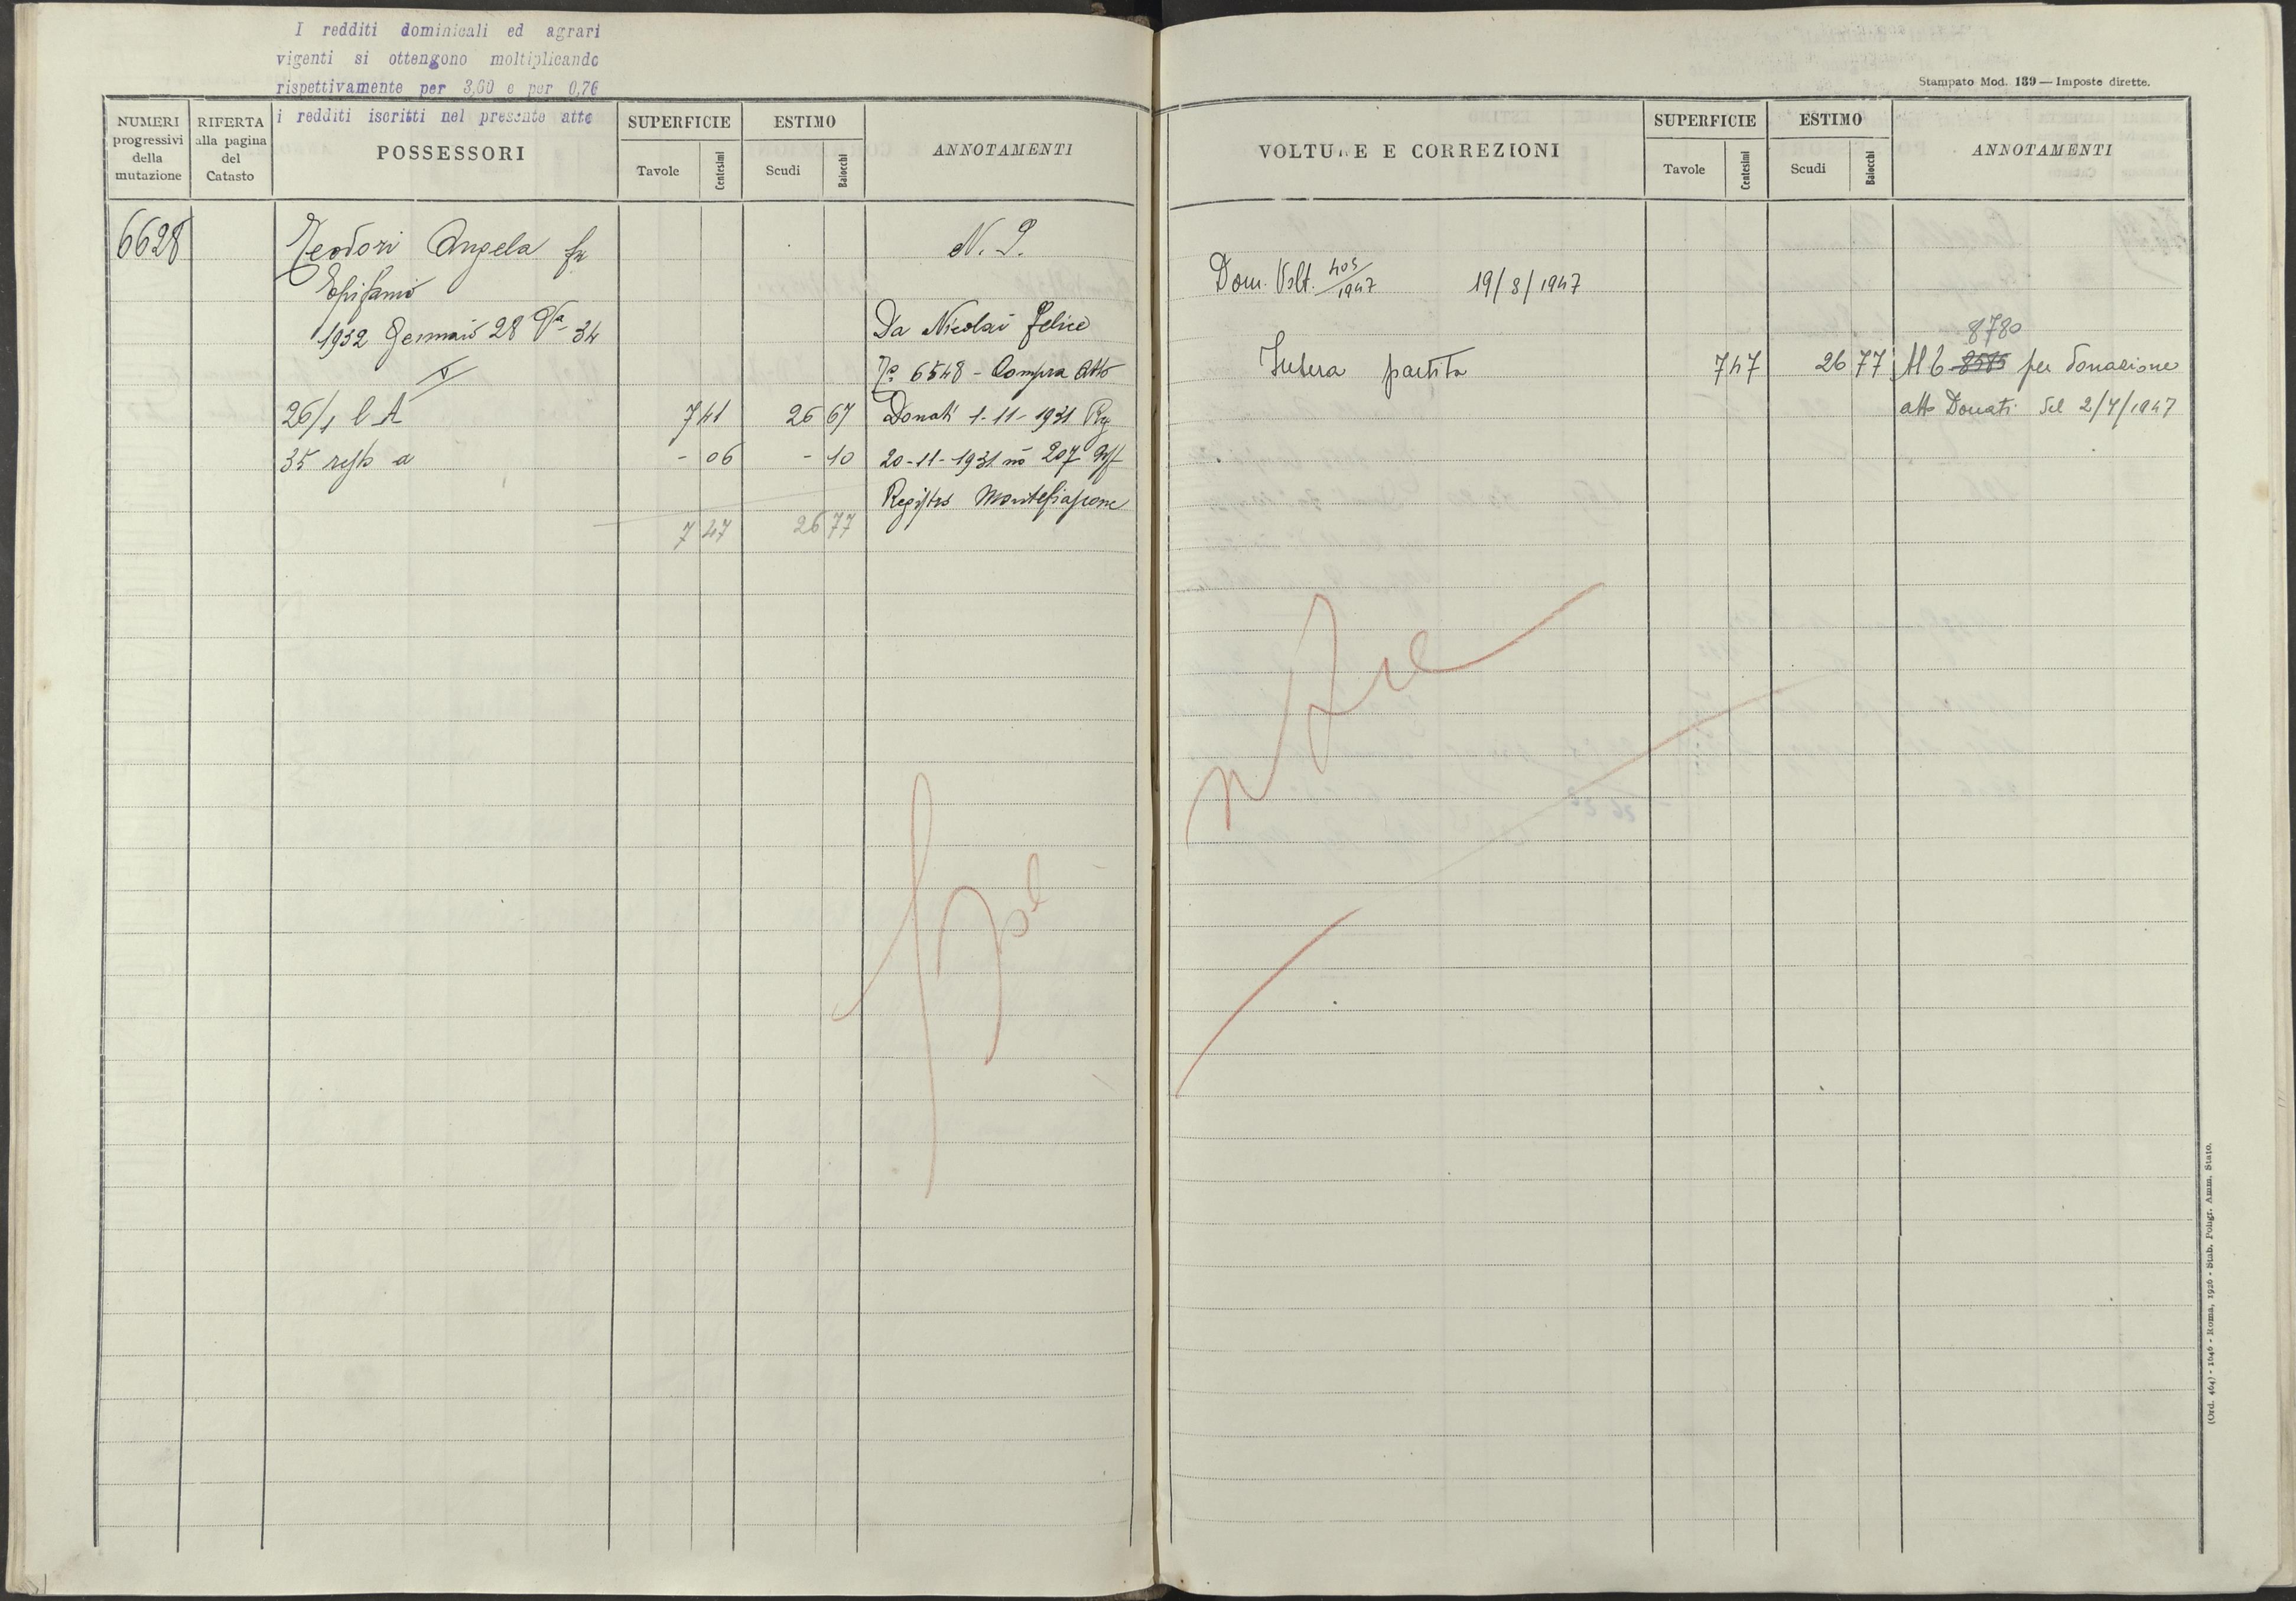 I redditi dominicali ed agrari
vigenti si ottengono moltiplicando
rispettivamente per 3,60 e per 0,76
i redditi iscritti nel presente atto
NUMERI progressivi della mutazione
RIFERTA alla pagina del Catasto
POSSESSORI
SUPERFICIE
Tavole Centesimi
ESTIMO
Scudi Baiocchi
ANNOTAMENTI
6628 Teodori Angela fu N. P.
Epifanio
1932 Gennaio 28 Va 34 Da Nicolai Felice
No 6548 - Compra Atto
26/1 l A 7 41 26 67 Donati 1-11-1931 Rg
35 resto a - 06 - 10 20-11-1931 no 207 Uff
Registro Montefiascone
7 47 26 77
Stampato Mod. 139 — Imposte dirette.
VOLTURE E CORREZIONI
SUPERFICIE
Tavole Centesimi
ESTIMO
Scudi Baiocchi
ANNOTAMENTI
Dom. Volt. 405/1947 19/8/1947
8780
Intera partita 7 47 26 77 Al 6 8585 per donazione
atto Donati del 2/7/1947
(Ord. 464) - 1646 - Roma, 1926 - Stab. Poligr. Amm. Stato.